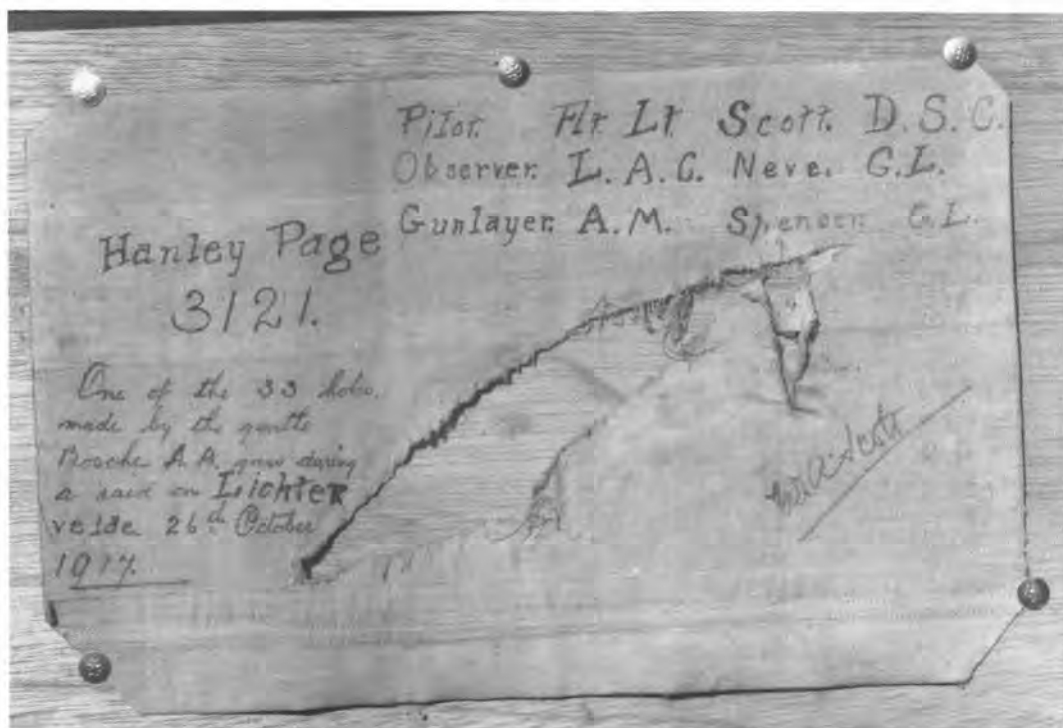 Pilot. Flt Lt Scott. D.S.C.
Observer. L.A.C. Neve. G.L.
Gunlayer. A.M. Spencer. G.L.
Hanley Page
3121.
One of the 33 holes
made by the gentle
Bosche A.A. guns during
a raid on Lichter
velde 26th October
1917.
Scott